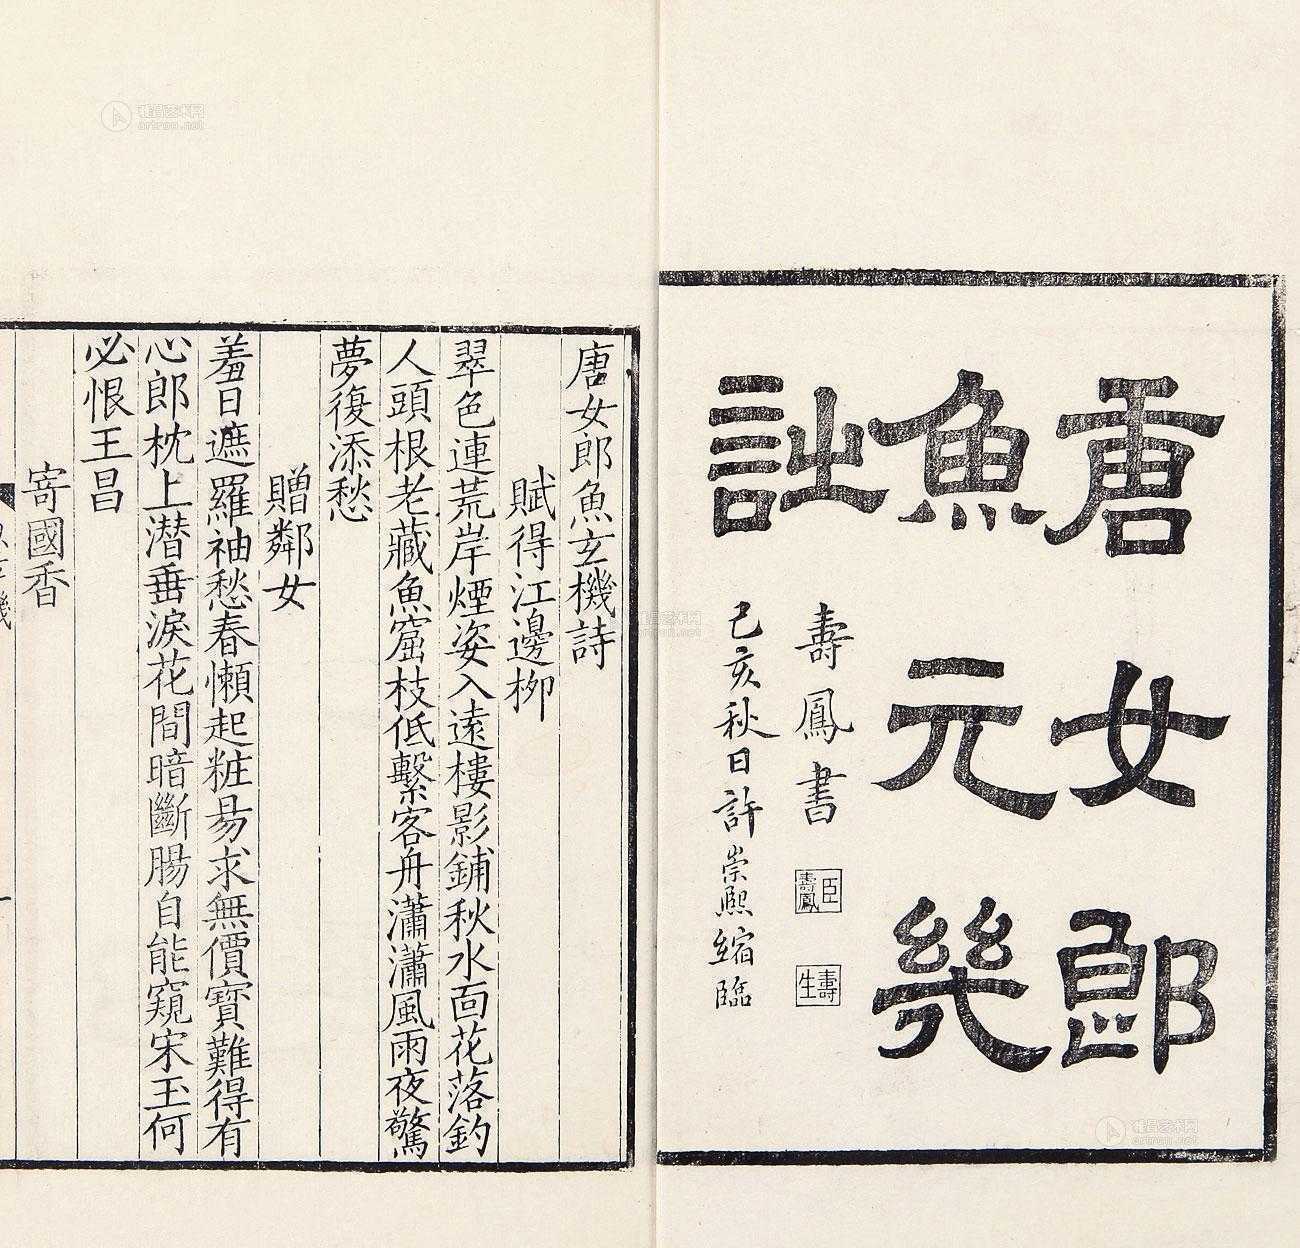 唐女郎
魚元機
詩
壽鳳書
臣壽鳳
壽生
己亥秋日許崇熙縮臨
唐女郎魚玄機詩
賦得江邊柳
翠色連荒岸煙姿入遠樓影鋪秋水面花落釣
人頭根老藏魚窟枝低繫客舟瀟瀟風雨夜驚
夢復添愁
贈鄰女
羞日遮羅袖愁春懶起粧易求無價寶難得有
心郎枕上潜垂淚花間暗斷腸自能窺宋玉何
必恨王昌
寄國香
雅昌艺术网
artron.net
雅昌艺术网
artron.net
雅昌艺术网
artron.net